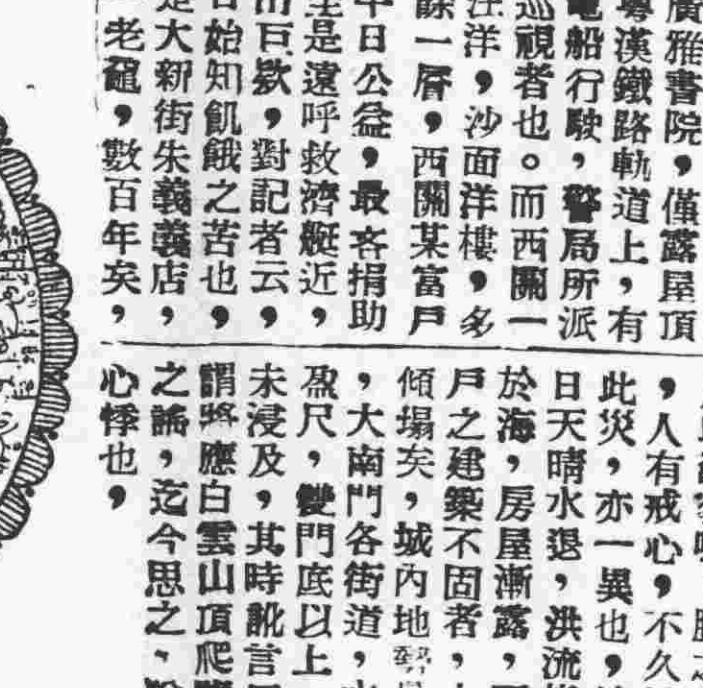 廣雅書院，僅露屋頂
粵漢鐵路軌道上，有
電船行駛，警局所派
巡視者也。而西關一
汪洋，沙面洋樓，多
餘一層，西關某富戶
平日公益，最吝捐助
是遠呼救濟艇近，
出巨欵，對記者云，
始知飢餓之苦也，
是大新街朱義義店，
老龜，數百年矣，
，人有戒心，不久
此災，亦一異也，
日天晴水退，洪流
於海，房屋漸露，
戶之建築不固者，
傾塌矣，城內地
，大南門各街道，
盈尺，雙門底以上
未浸及，其時訛言
謂將應白雲山頂爬
之謠，迄今思之、
心悸也，